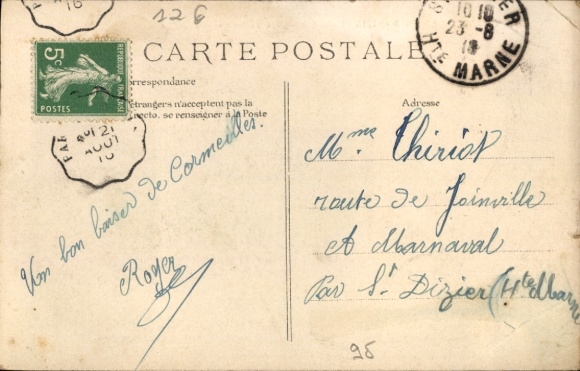 126
CARTE POSTALE
5c
REPUBLIQUE FRANÇAISE
POSTES
rrespondance
étrangers n'acceptent pas la
recto. se renseigner à la Poste
Adresse
10 10
23 - 8
HTE MARNE
21
AOUT
10
Un bon baiser de Cormeilles.
Royer
Mme Thiriot
route de Joinville
A Marnaval
Par St Dizier (Hte Marne
98